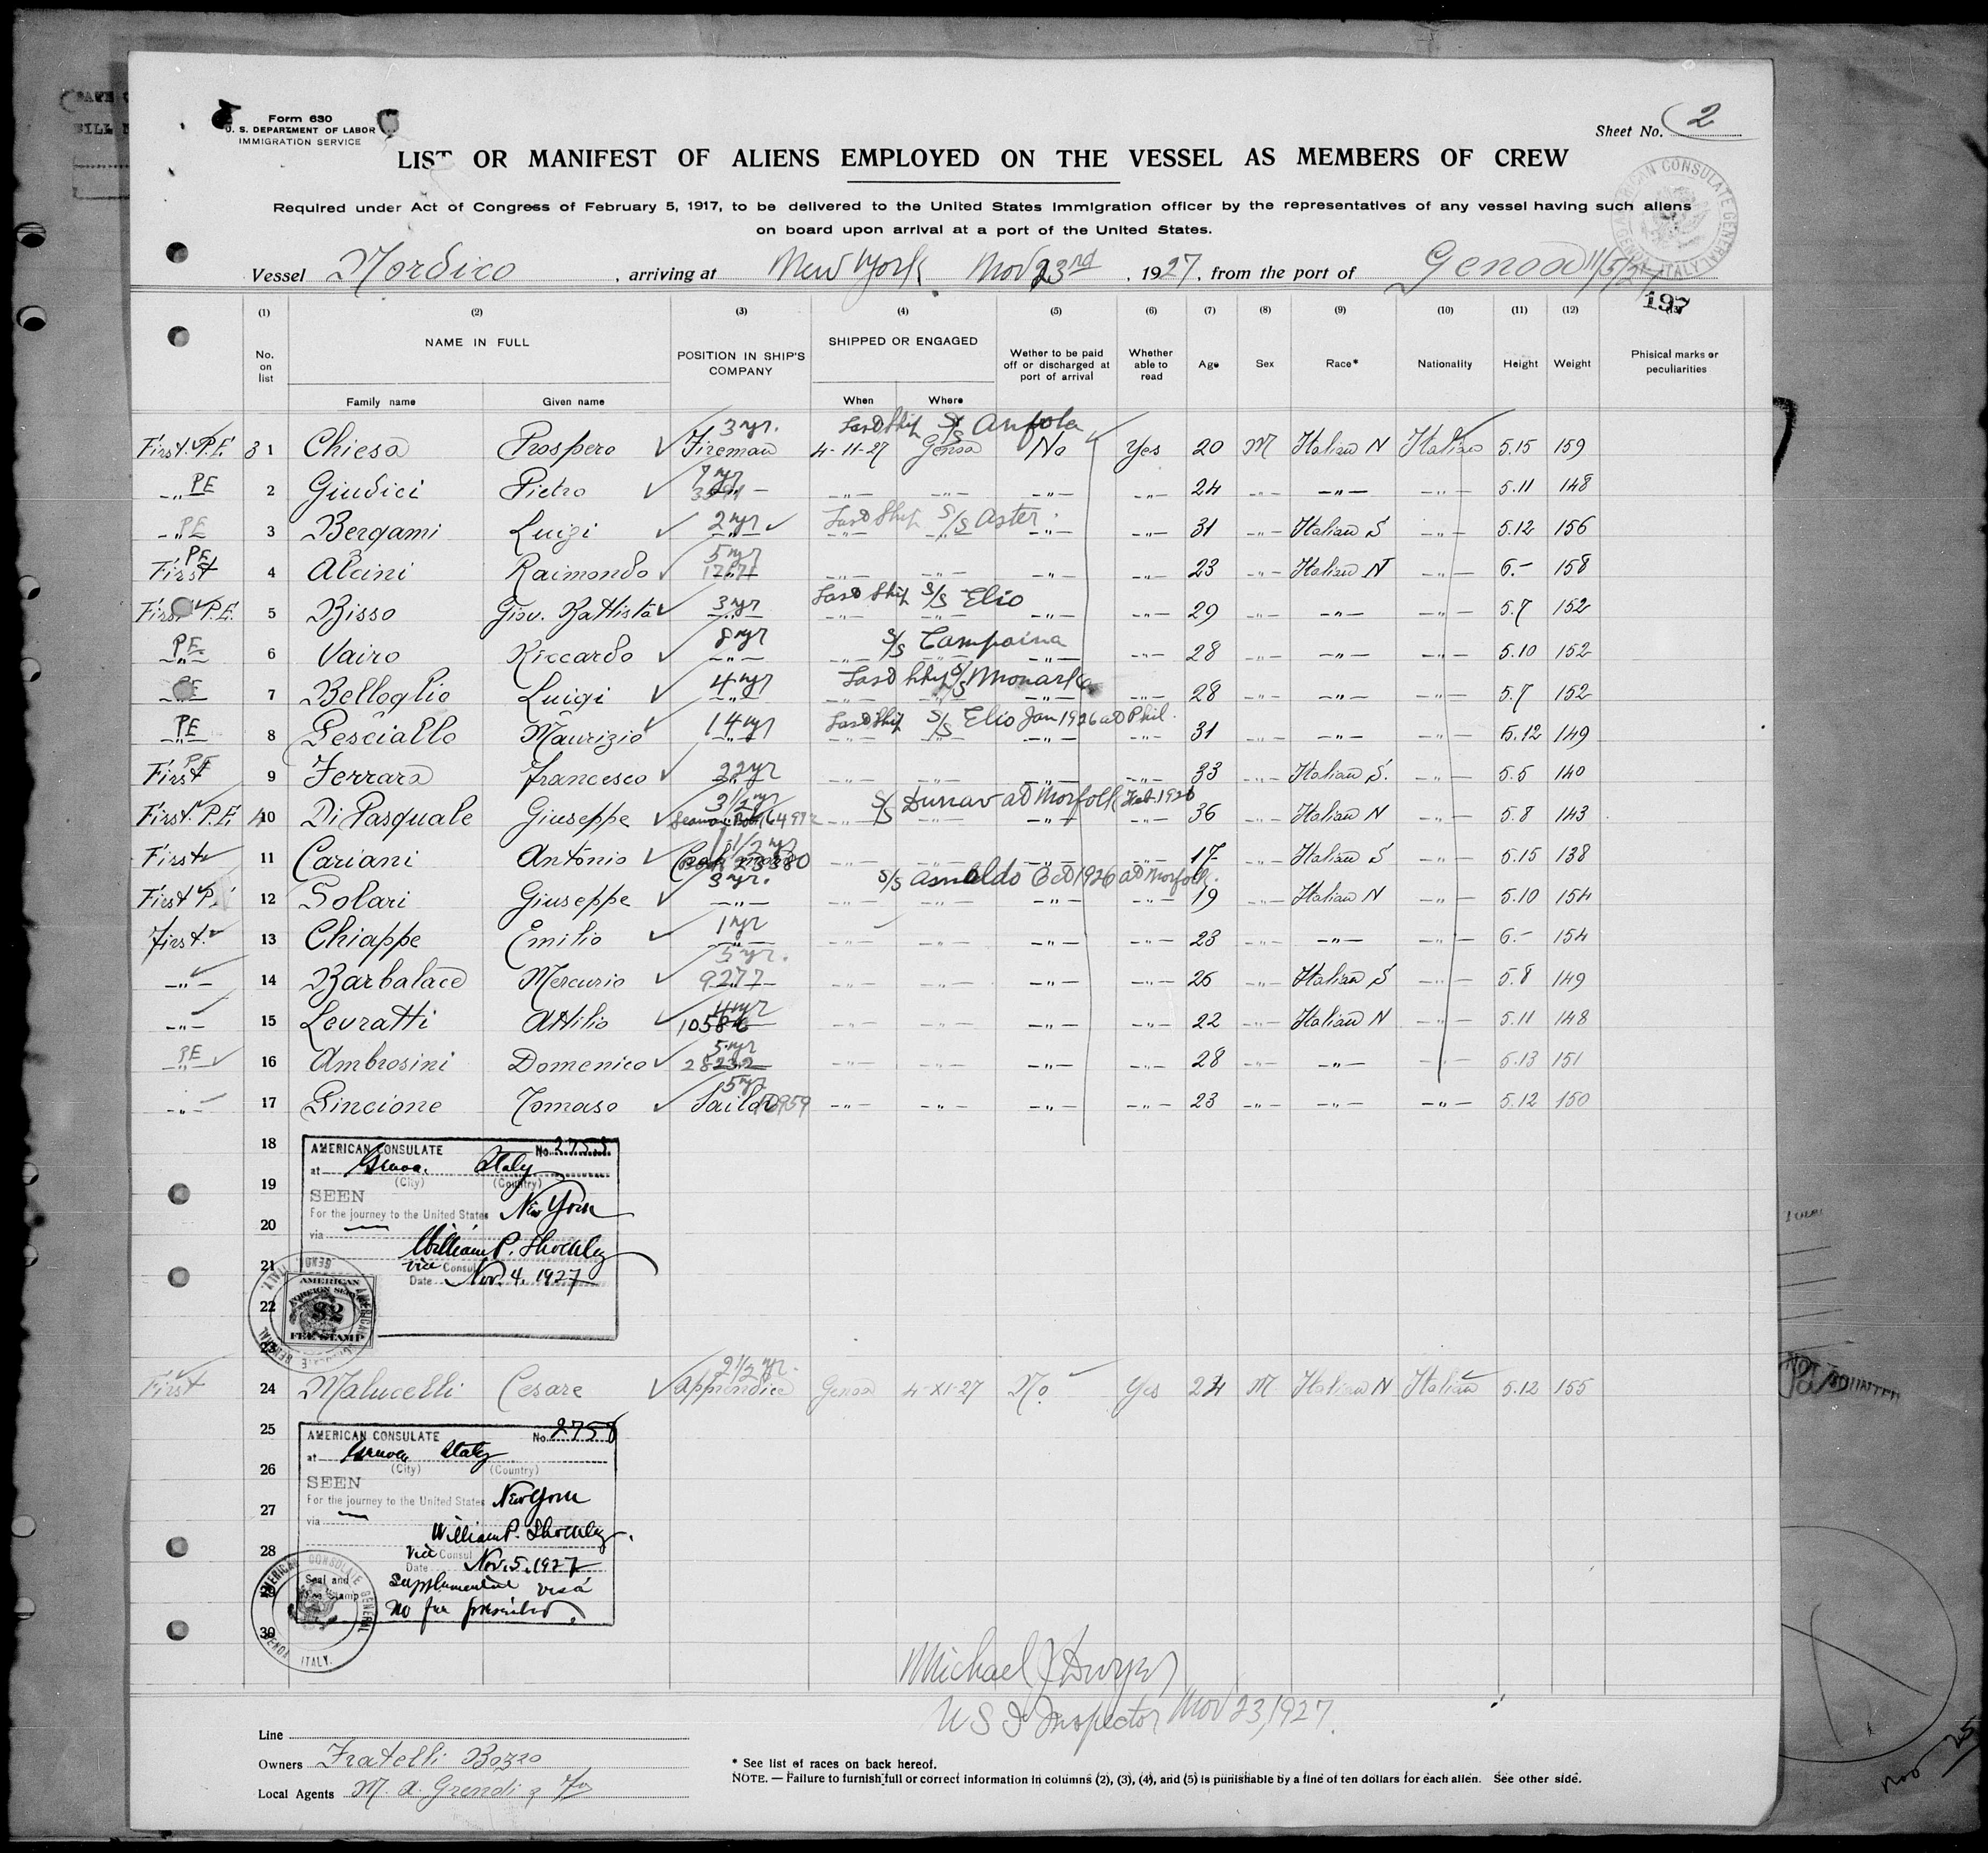 Form 630
U. S. DEPARTMENT OF LABOR
IMMIGRATION SERVICE
Sheet No. 2
LIST OR MANIFEST OF ALIENS EMPLOYED ON THE VESSEL AS MEMBERS OF CREW
Required under Act of Congress of February 5, 1917, to be delivered to the United States Immigration officer by the representatives of any vessel having such aliens
on board upon arrival at a port of the United States.
Vessel Nordico, arriving at New York Nov 23rd, 1927, from the port of Genoa 11/5/27
197
(1) (2) (3) (4) (5) (6) (7) (8) (9) (10) (11) (12)
No. on list NAME IN FULL POSITION IN SHIP'S COMPANY SHIPPED OR ENGAGED Wether to be paid off or discharged at port of arrival Whether able to read Age Sex Race* Nationality Height Weight Phisical marks or peculiarities
Family name Given name When Where
3 yr. Last Ship S/S
First P.E. 3 1 Chiesa Prospero Fireman 4-11-27 Genoa No Yes 20 M Italian N Italian 5.15 159
7 yr
-"- PE 2 Giudici Pietro -"- -"- -"- -"- 24 -"- -"- -"- 5.11 148
2 yr Last Ship S/S Aster
-"- PE 3 Bergami Luigi -"- -"- -"- -"- -"- 31 -"- Italian S -"- 5.12 156
5 yr
First PE 4 Alcini Raimondo -"- -"- -"- -"- 23 -"- Italian N -"- 6.- 158
3 yr Last Ship S/S Elio
First P.E. 5 Bisso Giov. Battista -"- -"- -"- -"- -"- 29 -"- -"- -"- 5.7 152
8 yr S/S Campaina
PE -"- 6 Vairo Riccardo -"- -"- -"- -"- -"- 28 -"- -"- -"- 5.10 152
4 yr Last Ship S/S
PE -"- 7 Belloglio Luigi -"- -"- -"- -"- -"- 28 -"- -"- -"- 5.7 152
14 yr Last Ship S/S Elio Jan 1926 at Phil.
PE -"- 8 Pesciallo Maurizio -"- -"- -"- -"- -"- 31 -"- -"- -"- 5.12 149
22 yr
First PE 9 Ferrara Francesco -"- -"- -"- -"- -"- 33 -"- Italian S. -"- 5.5 140
3 1/2 yr S/S Dunav at Norfolk Feb 1926
First P.E. 4 10 Di Pasquale Giuseppe -"- -"- -"- -"- 36 -"- Italian N -"- 5.8 143
First 11 Cariani Antonio 23380 -"- -"- -"- -"- 17 -"- Italian S -"- 5.15 138
3 yr. S/S Oct 1926 at Norfolk.
First P. 12 Solari Giuseppe -"- -"- -"- -"- -"- 19 -"- Italian N -"- 5.10 154
1 yr
First. 13 Chiappe Emilio -"- -"- -"- -"- -"- 23 -"- -"- -"- 6.- 154
5 yr.
-"- 14 Barbalace Mercurio 9277 -"- -"- -"- -"- 26 -"- Italian S -"- 5.8 149
4 yr
-"- 15 Levratti Attilio -"- -"- -"- -"- 22 -"- Italian N -"- 5.11 148
5 yr
PE -"- 16 Ambrosini Domenico 28232 -"- -"- -"- -"- 28 -"- -"- -"- 5.13 151
5 yr
-"- 17 Pincione Tomaso Sailor -"- -"- -"- -"- 23 -"- -"- -"- 5.12 150
18 AMERICAN CONSULATE No.
at Genoa. Italy
19 (City) (Country)
SEEN
For the journey to the United States New York
20 via
William P. Shockley
21 Vice Consul
Date Nov. 4. 1927
22 AMERICAN
FOREIGN SERVICE
$2
FEE STAMP
AMERICAN CONSULATE GENERAL
GENOA, ITALY.
2 1/2 yr.
First 24 Malucelli Cesare Apprendice Genoa 4-XI-27 No. Yes 24 M Italian N Italian 5.12 155
25 AMERICAN CONSULATE No. 2758
at Genoa Italy
26 (City) (Country)
SEEN
For the journey to the United States New York
27 via
William P. Shockley
28 Vice Consul
Date Nov. 5. 1927
29 Seal and Fee Stamp Supplemental visa
No fee prescribed.
30
AMERICAN CONSULATE GENERAL
GENOA ITALY.
Michael J Dwyer
U S I Inspector Nov 23, 1927.
Line
Owners Fratelli Bozzo
Local Agents M. A. Grendi
* See list of races on back hereof.
NOTE. — Failure to furnish full or correct information in columns (2), (3), (4), and (5) is punishable by a fine of ten dollars for each alien. See other side.
Nov 25